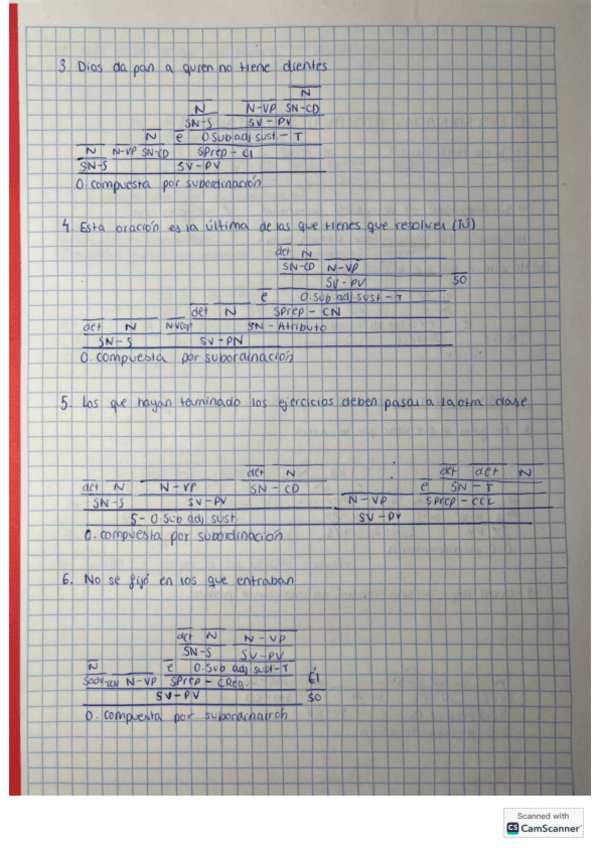 3. Dios da pan a quien no tiene dientes
N
N N-VP SN-CD
SN-S SV-PV
N e O.Sub adj sust.-T
N N-VP SN-CD SPrep-CI
SN-S SV-PV
O. compuesta por subordinación
4. Esta oración es la última de las que tienes que resolver (Tú)
det N
SN-CD N-VP
SV-PV SO
e O.Sub adj-sust-T
det N SPrep-CN
det N N-VCop SN-Atributo
SN-S SV-PN
O. compuesta por subordinación
5. Los que hayan terminado los ejercicios deben pasar a la otra clase
det N det det N
det N N-VP SN-CD e SN-T
SN-S SV-PV N-VP SPrep-CCL
S-O.Sub adj sust. SV-PV
O. compuesta por subordinación
6. No se fijó en los que entraban
det N N-VP
SN-S SV-PV
N e O.Sub adj sust-T
N-VP SPrep-CReg. Él
SV-PV SO
O. compuesta por subordinación
Scanned with
CS CamScanner